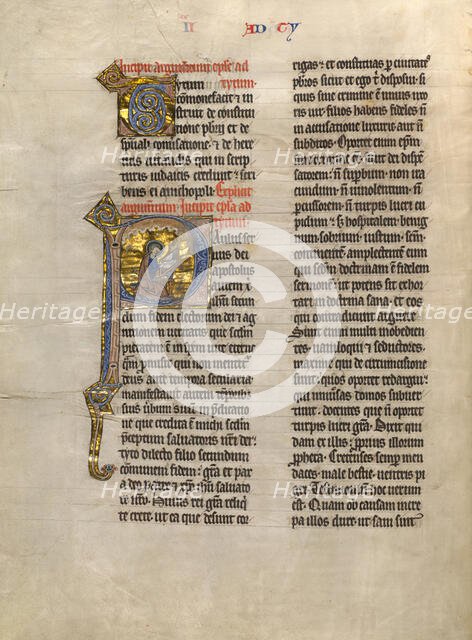 II AD TY
Incipit argumentum epistole ad
tytum
Tytum
commonefacit et in
struit de constitu
tione presbyterii et de
spirituali conversatione et de here
ticis vitandis qui in scrip
turis iudaicis credunt scri
bens ei a nichopoli. Explicit
argumentum. Incipit epistola ad
tytum
Paulus ser
vus dei
apostolus
autem ihesu
christi secundum
fidem electorum dei et ag
nitionem veritatis que secundum
pietatem est in spem vite eterne
quam promisit qui non mentitur
deus ante tempora secularia
manifestavit autem temporibus
suis verbum suum in predicatio
ne que credita est michi secundum
preceptum salvatoris nostri dei
tyto dilecto filio secundum
communem fidem gratia et pax
a deo patre et christo ihesu salvatore
nostro. Huius rei gratia reliqui
te crete ut ea que desunt cor
rigas et constituas per civitates
presbiteros sicut et ego tibi disposui. si
quis sine crimine est unius uxo
ris vir filios habens fideles non
in accusatione luxurie aut non
subditos. Oportet enim episcopum
sine crimine esse sicut dei dispen
satorem. non superbum non ira
cundum non vinolentum non
percussorem non turpis lucri cu
pidum sed hospitalem benig
num sobrium iustum sanctum
continentem amplectentem eum
qui secundum doctrinam est fidelem
sermonem ut potens sit exhor
tari in doctrina sana et eos
qui contradicunt arguere
Sunt enim multi inobedien
tes vaniloqui et seductores
maxime qui de circumcisione
sunt quos oportet redargui
qui universas domos subver
tunt docentes que non oportet
turpis lucri gratia. Dixit qui
dam ex illis proprius illorum
propheta. Cretenses semper men
daces male bestie ventris pi
gri. Testimonium hoc verum
est. Quam ob causam incre
pa illos dure ut sani sint
Heritage
Heritage
Heritage
Heritage
Heritage
Heritage
©